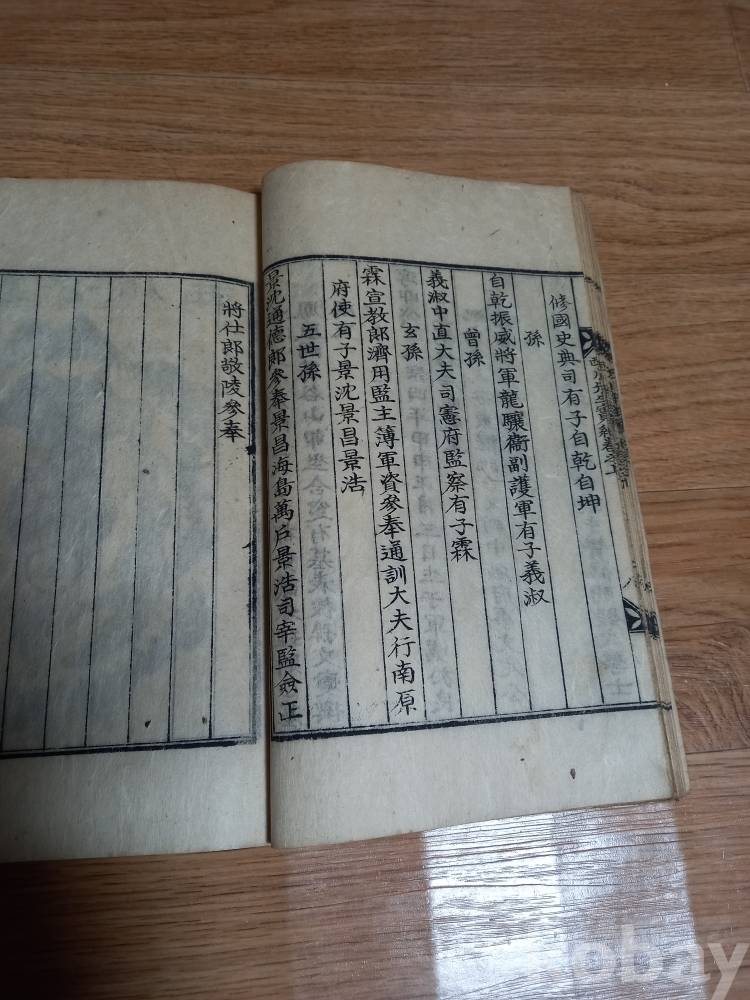 修國史典司有子自乾自坤
孫
自乾振威將軍龍驤衛副護軍有子義淑
曾孫
義淑中直大夫司憲府監察有子霖
玄孫
霖宣敎郞濟用監主簿軍資參奉通訓大夫行南原
府使有子景沈景昌景浩
五世孫
景沈通德郞參奉景昌海島萬戶景浩司宰監僉正
將仕郞敬陵參奉
obay